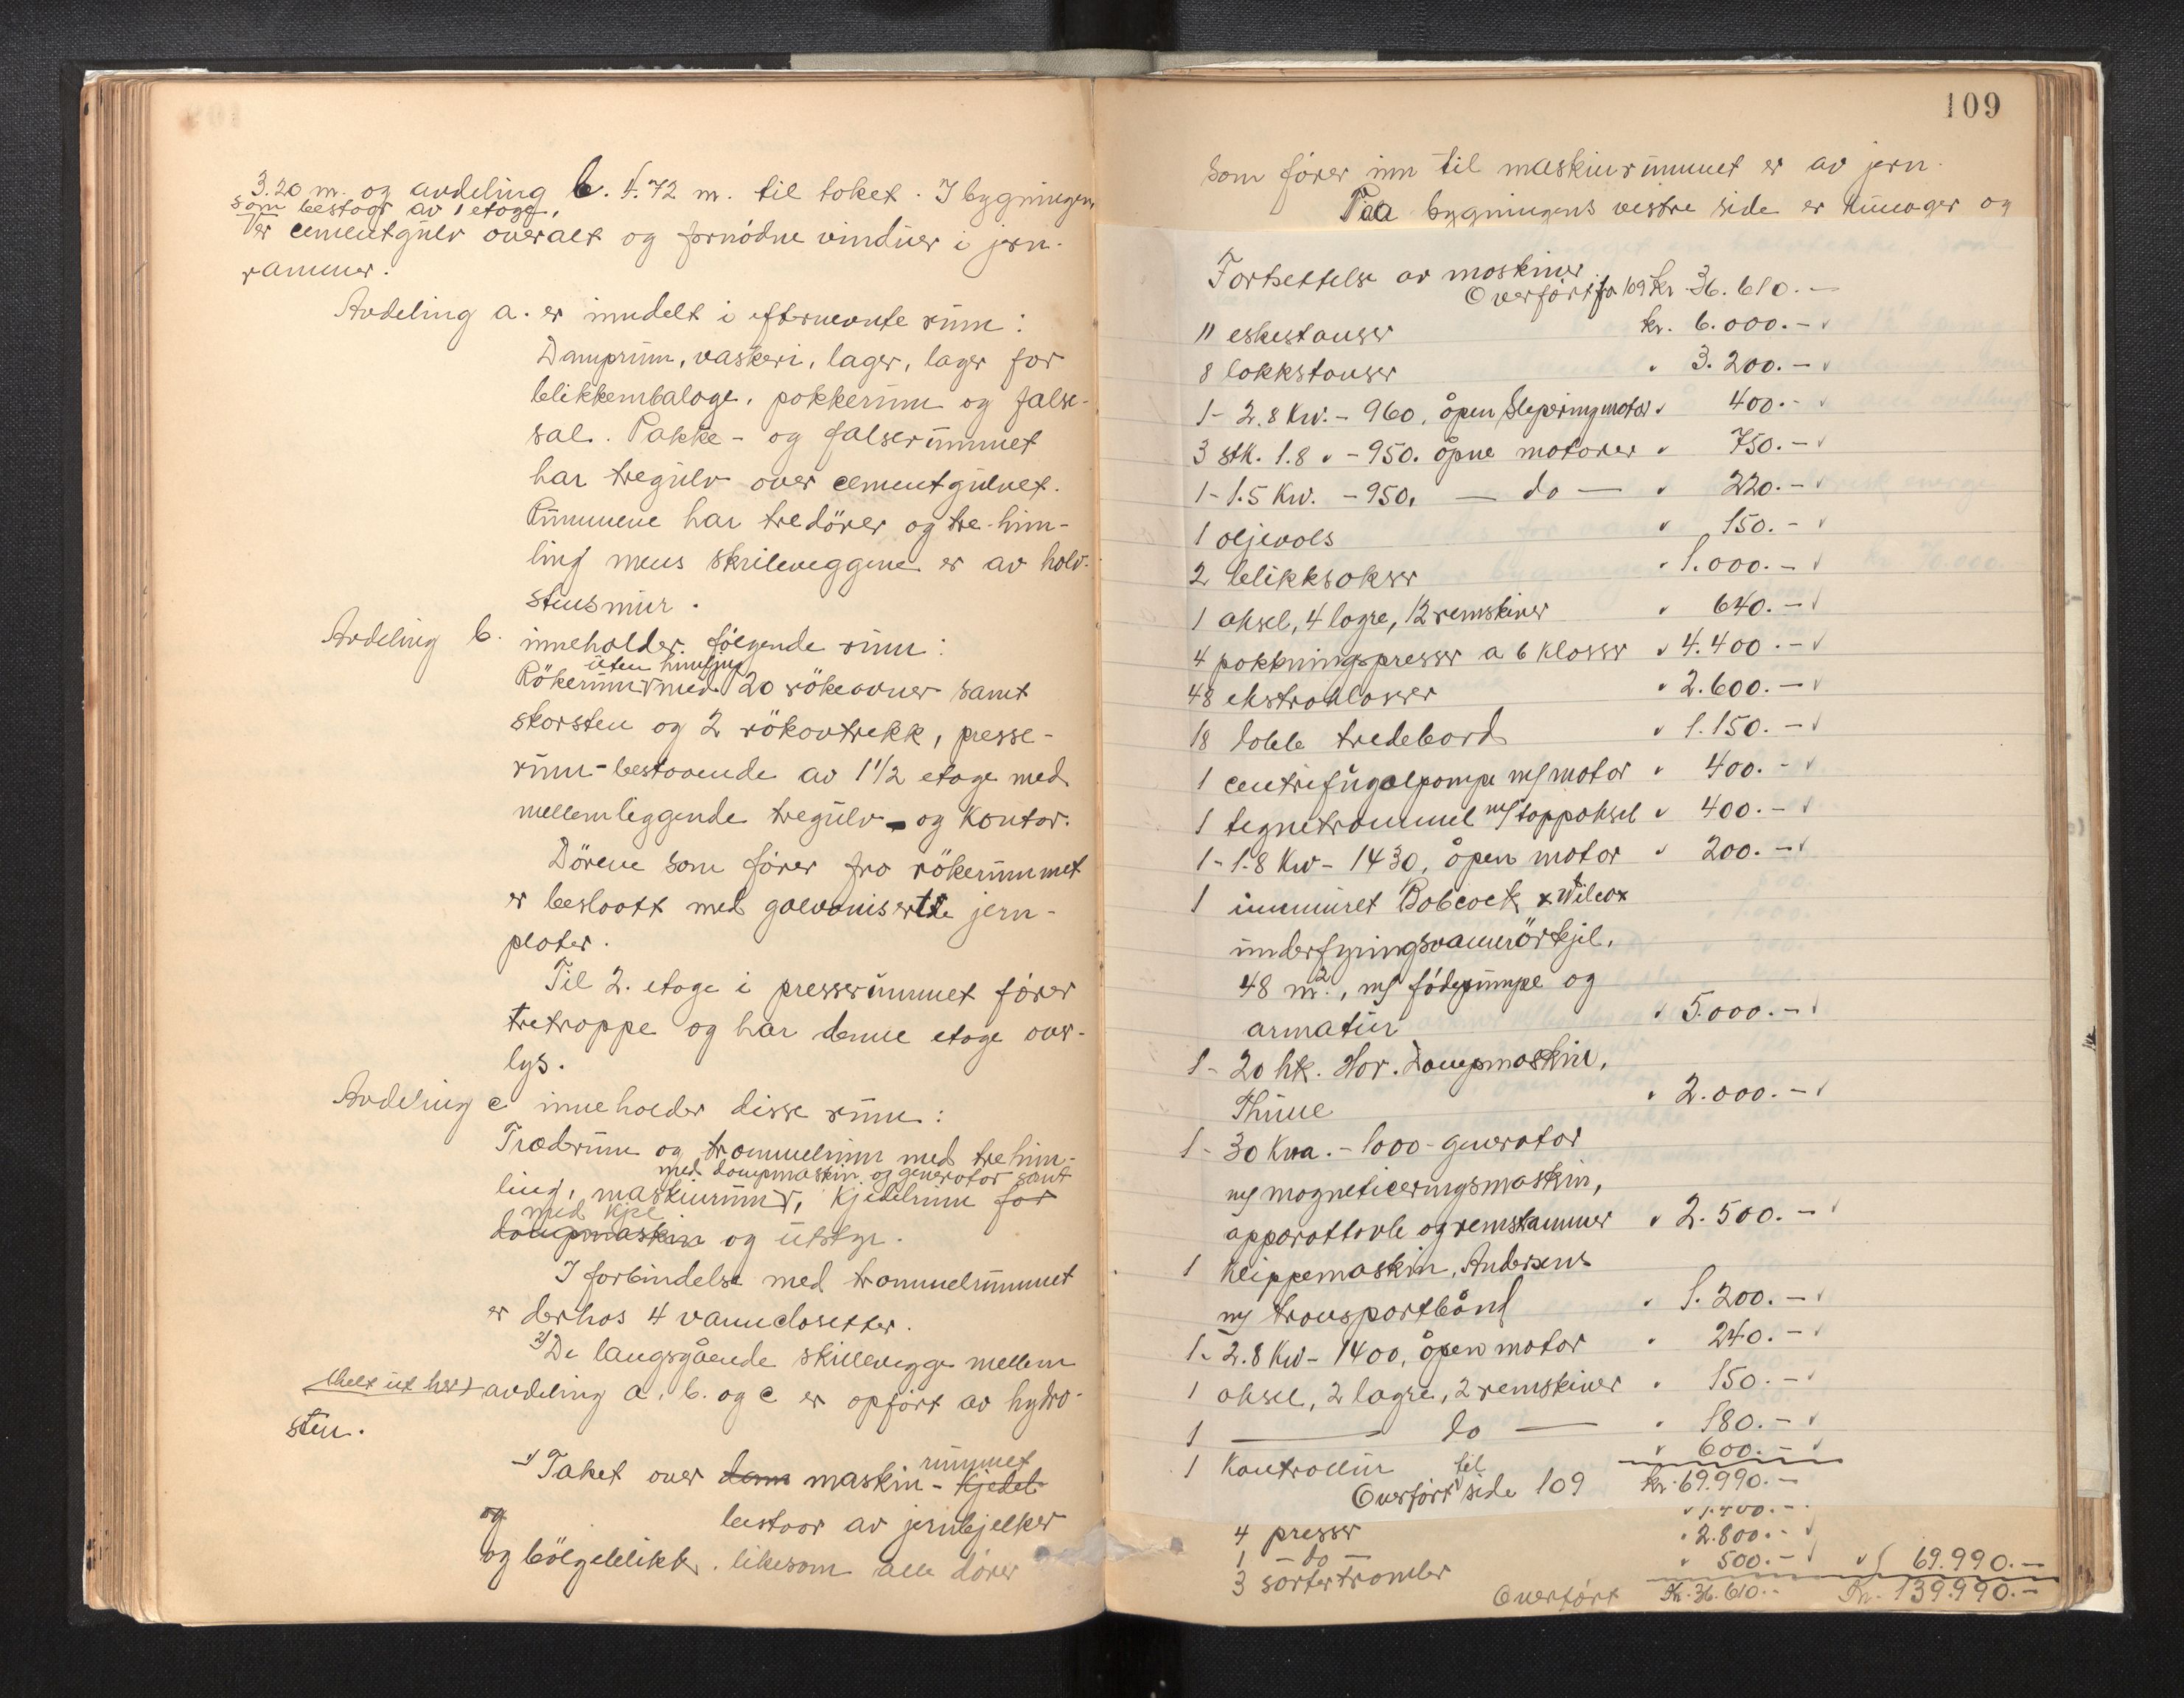 3.20 m. og avdeling b. 4.72 m. til taket. I bygningen
som bestaar av 1 etage,
er cementgulv overalt og fornødne vinduer i jern-
rammer.
Avdeling a. er inndelt i efternevnte rum:
Damprum, vaskeri, lager, lager for
blikkembalage, pakkerum og false-
sal. Pakke- og falserummet
har tregulv over cementgulvet.
Rummene har tredører og tre-him-
ling mens skilleveggene er av holv-
stensmur.
Avdeling b. inneholder følgende rum:
uten himling
Rökerum med 20 rökeovner samt
skorsten og 2 rökavtrekk, presse-
rum - bestaaende av 1 1/2 etage med
mellemliggende tregulv - og kontor.
Dörene som förer fra rökerummet
er beslaatt med galvaniserte jern-
plater.
Til 2. etage i presserummet förer
tretrappe og har denne etage over-
lys.
Avdeling c inneholder disse rum:
Træderum og trommelrum med trehim-
med dampmaskin og generator samt
ling, maskinrum, kjedelrum for
med kjel
dampmaskin og utstyr.
I forbindelse med trommelrummet
er derhos 4 vannclosetter.
2) De langsgående skillevegge mellem
(helt ut her) avdeling a, b. og c er opført av hydro-
sten.
1) Taket over dam maskin- rummet kjedel-
og bestaar av jernbjelker
og bölgeblikk. likesom alle dörer
109
som fører inn til maskinrummet er av jern.
Paa bygningens vestre side er
og
Fortsettelse av maskiner
Overført fra 109 Kr. 36.610.-
11 eskestanser kr. 6.000.-
8 lokkstanser " 3.200.-
1 - 2.8 Kw. - 960, åpen Sleperingmotor " 400.-
3 stk. 1.8 " - 950. åpne motorer " 750.-
1 - 1.5 Kw. - 950, — do — " 220.-
1 oljevals " 150.-
2 blikksakser " 1.000.-
1 aksel, 4 lagre, 12 remskiver " 640.-
4 pakningspresser a 6 klosser " 4.400.-
48 ekstraklosser " 2.600.-
18 doble tredebord " 1.150.-
1 centrifugalpumpe m/motor " 400.-
1 tegnetrommel m/toppaksel " 400.-
1 - 1.8 Kw - 1430, åpen motor " 200.-
1 innmuret Babcock & Wilcox
underfyringsvannrörkjel,
48 m², m/ födepumpe og
armatur " 5.000.-
1 - 20 hk. Hor. Dampmaskin,
Thune " 2.000.-
1 - 30 Kva. - 1000 - generator
m/ magneticeringsmaskin,
apparattavle og remstammer " 2.500.-
1 Klippemaskin, Andersens
m/ transportbånd " 1.200.-
1 - 2.8 Kw - 1400, åpen motor " 240.-
1 aksel, 2 lagre, 2 remskiver " 150.-
1 — do — " 180.-
1 Kontrollur " 600.-
Overført til side 109 kr. 69.990.-
" 1.400.-
4 presser " 2.800.-
1 - do -
3 sortertromler " 500.- " 69.990.-
Overført Kr. 36.610.- Kr. 139.990.-